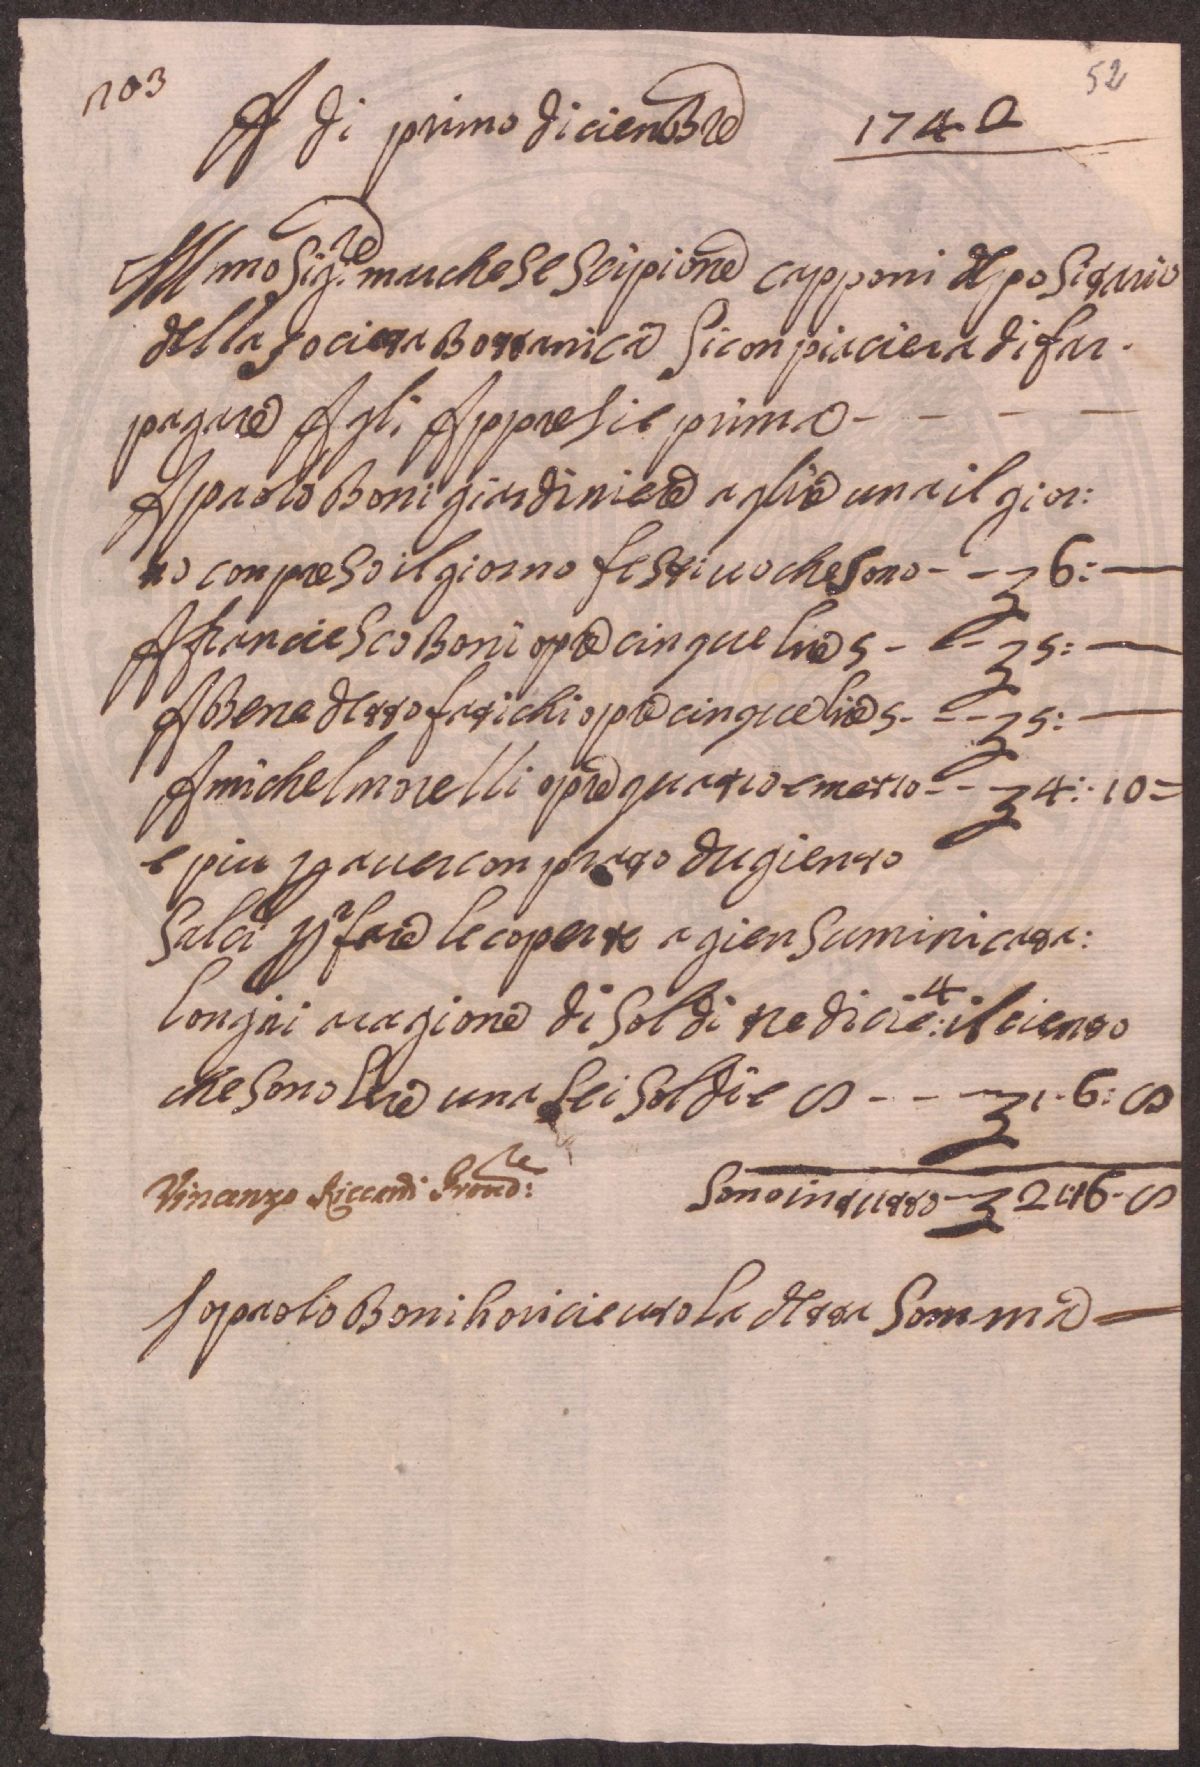 103
52
A di primo diciembre 1742
Illmo Sig.re marchese Scipione capponi depositario
della Societa Bottanica si conpiaciera di far
pagare A gli Appresi e prima - - - -
A paolo Boni giardiniere a lire una il gior:
no conpreso il giorno festivo che sono - - 6: —
A franciesco Boni opre cinque lire 5 - - 5: —
A Benedetto farichi opre cinque lire 5 - - - 5: —
A michel morelli opre quatro e mezo - - - 4: 10 =
e piu p aver conprato dugiento
Salci p fare le coperte a gien
longni a ragione di soldi tredici e 4: il ciento
che sono lire una sei soldi e 8 - - - 1. 6: 8
Vincenzo Riccardi Proved:re
Sono in tutto - 21:16 - 8
Io paolo Boni ho riceuto la detta Somma —